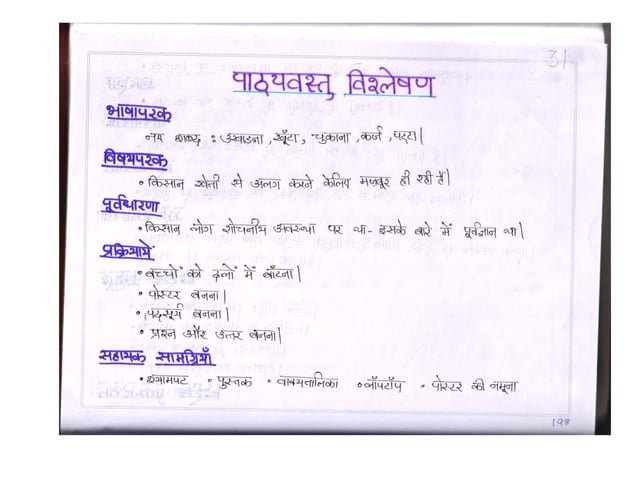 31
पाठ्यवस्तु विश्लेषण
भाषापरक
नए शब्द : उखाडना, खूँटा, चुकाना, कर्ज, पट्टा।
विषयपरक
• किसान खेती से अलग करने केलिए मजबूर हो रही हैं।
पूर्वधारणा
• किसान लोग शोचनीय अवस्था पर था - इसके बारे में पूर्वज्ञान था।
प्रक्रियायें
• बच्चों को दलों में बाँटना।
• पोस्टर बनना।
• पदसूर्य बनना।
• प्रश्न और उत्तर बनना।
सहायक सामग्रियाँ
• श्यामपट • पुस्तक • वाक्यतालिका • लॉपटॉप • पोस्टर की नमूना
198